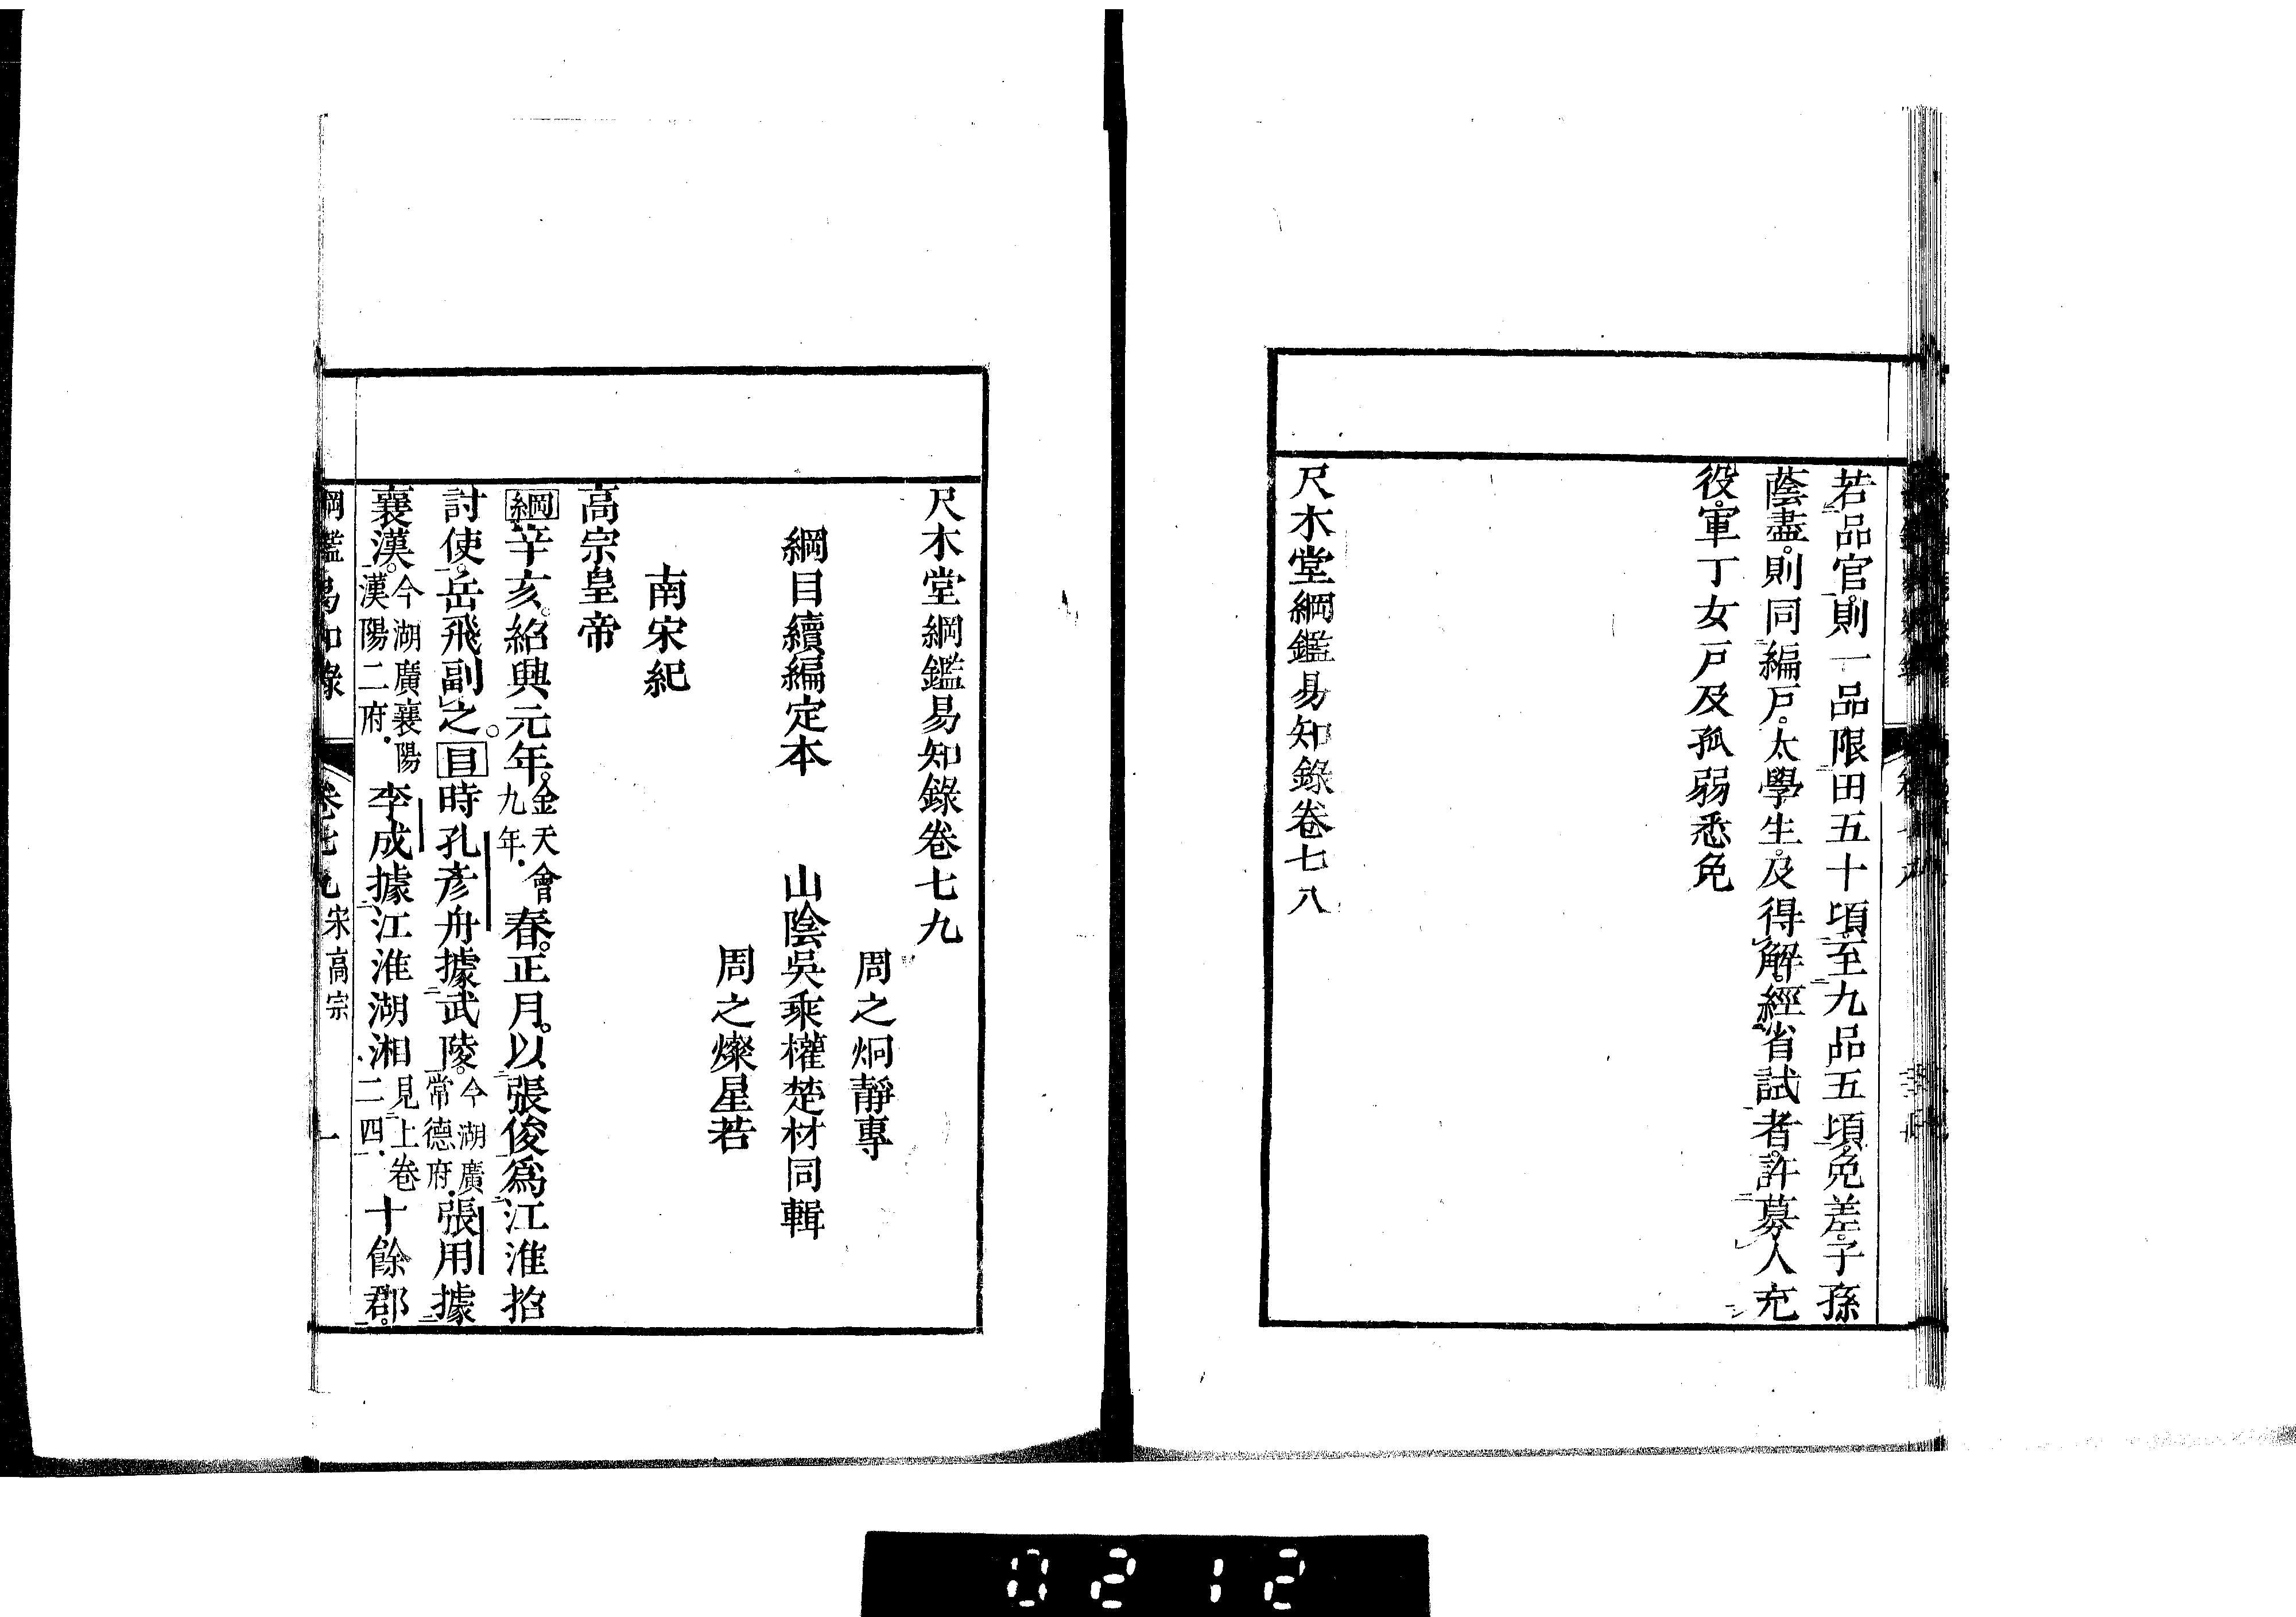 若品官則一品限田五十頃至九品五頃免差子孫
蔭盡則同編戶太學生及得解經省試者許募人充
役軍丁女戶及孤弱悉免
尺木堂綱鑑易知錄卷七八
尺木堂綱鑑易知錄卷七九
周之炯靜專
綱目續編定本 山陰吳乘權楚材同輯
周之燦星若
南宋紀
高宗皇帝
綱辛亥。紹興元年。金天會九年．春。正月。以張俊爲江淮招
討使。岳飛副之。目時孔彥舟據武陵。今湖廣常德府．張用據
襄漢。今湖廣襄陽漢陽二府．李成據江淮湖湘見上卷二四．十餘郡。
綱鑑易知錄 卷七九 宋高宗 一
0212